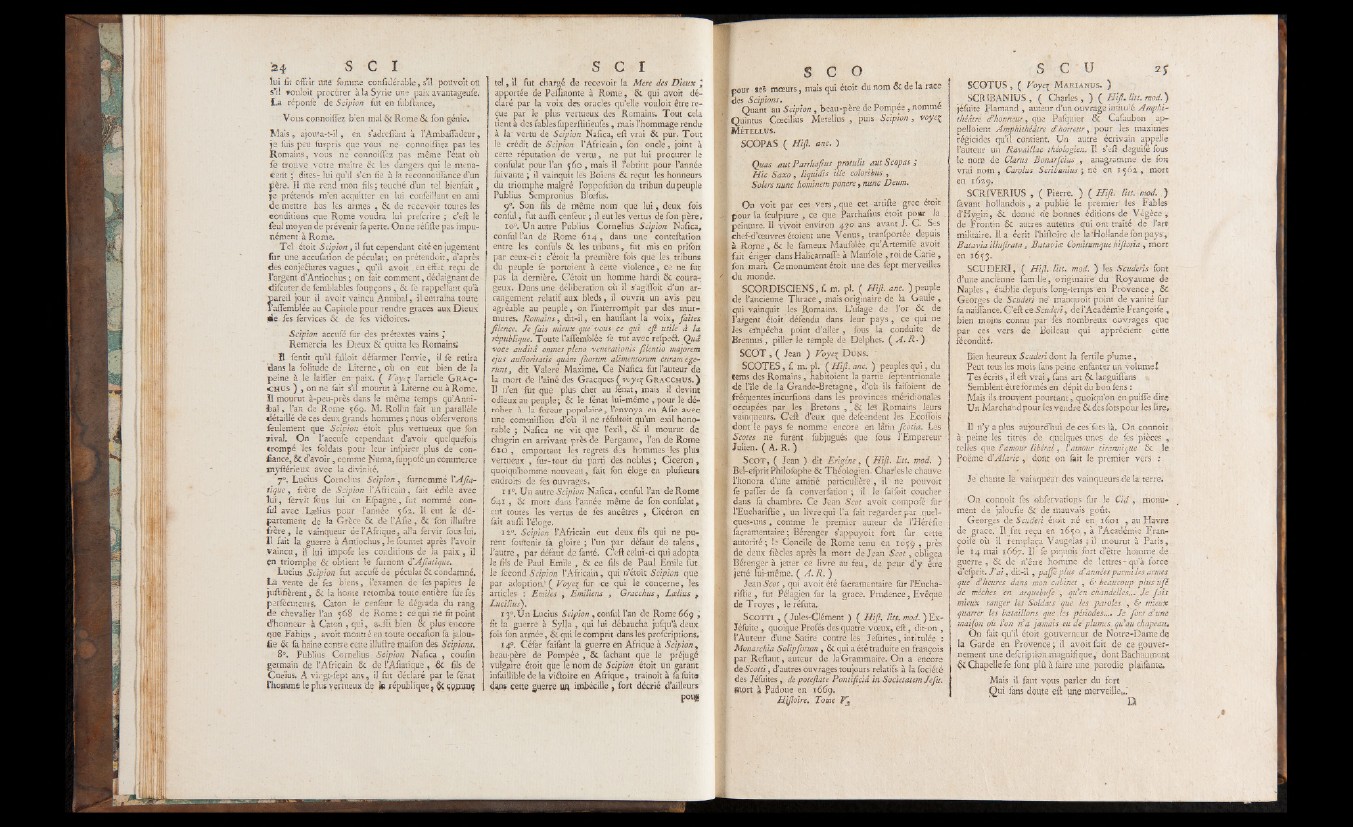 24 S C I
lui fit offrir une somme considérable, s'il pouvoit ou
s'il vouloit procurer à la Syrie une paix avantageuse.
La réponse de Scipion fut en substance,
Vous connoissez bien mal & Rome & son génie.
Mais, ajouta-t-il, en s'adressant à l'Ambassadeur,
je suis peu surpris que vous ne connoissiez pas les
Romains, vous ne connoissez pas même l'état où
se trouve votre maître & les dangers qui le mena-
cent ; dites-lui qu'il s'en fie à la reconnoissance d'un
père. Il me rend mon fils ; touché d'un tel bienfait,
je prétends m'en acquitter en lui conseillant en ami
de mettre bas les armes, & de recevoir toutes les
conditions que Rome voudra lui prescrire ; c'est le
seul moyen de prévenir sa perte. On ne résiste pas impu-
nément à Rome.
Tel étoit Scipion, il fut cependant cité en jugement
sur une accusation de péculat ; on prétendoit, d'après
des conjectures vagues, qu'il avoit en effet reçu de
l'argent d'Antiochus ; on sait comment, dédaignant de
discuter de semblables soupçons, & se rappellant qu'à
pareil jour il avoit vaincu Annibal, il entraîna toute
l'assemblée au Capitole pour rendre graces aux Dieux
de ses services & de ses victoires.
Scipion accusé sur des prétextes vains,
Remercia les Dieux & quitta les Romains.
Il sentit qu'il falloit désarmer l'envie, il se retira
dans la solitude de Literne, où on eut bien de la
peine à le laisser en paix. ( Voyez l'article GRAC-
CHUS ), on ne sait s'il mourut à Literne ou à Rome.
Il mourut à-peu-près dans le même temps qu'Anni-
bal, l'an de Rome 569. M. Rollin fait un parallèle
détaillé de ces deux grands hommes ; nous observerons
seulement que Scipion étoit plus vertueux que son
rival. On l'accuse cependant d'avoir quelquefois
trompé les soldats pour leur inspirer plus de con-
fiance, & d'avoir, comme Numa, supposé un commerce
mystérieux avec la divinité.
7°. Lucius Cornelius Scipion, surnommé l'Asia-
tique, frère de Scipion l'Africain, fait édile avec
lui, servit sous lui en Espagne, fut nommé con-
sul avec Lælius pour l'année 562. Il eut le dé-
partement de la Grèce & de l'Asie, & son illustre
frère, le vainqueur de l'Afrique, alla servir sous lui.
Il fait la guerre à Antiochus, le soumet après l'avoir
vaincu, il lui impose les conditions de la paix, il
en triomphe & obtient le surnom d'Asiatique.
Lucius Scipion fut accusé de péculat & condamné.
La vente de ses biens, l'examen de ses papiers le
justifièrent, & la honte retomba toute entière sur ses
persécuteurs. Caton le censeur le dégrada du rang
de chevalier l'an 568 de Rome : ce qui ne fit point
d'honneur à Caton, qui, aussi bien & plus encore
que Fabius, avoit montré en toute occasion sa jalou-
sie & sa haine contre cette illustre maison des Scipions.
8°. Publius Cornelius Scipion Nasica, cousin
germain de l'Africain & de l'Asiatique, & fils de
Cneius. A vingt-sept ans, il fut déclaré par le sénat
l'homme le plus vertueux de la république, & comme
S C I
tel, il fut chargé de recevoir la Mere des Dieux,
apportée de Pessinonte à Rome, & qui avoit dé-
claré par la voix des oracles qu'elle vouloit être re-
çue par le plus vertueux des Romains. Tout cela
tient à des fables superstitieuses, mais l'hommage rendu
à la vertu de Scipion Nasica, est vrai & pur. Tout
le crédit de Scipion l'Africain, son oncle, joint à
cette réputation de vertu, ne put lui procurer le
consulat pour l'an 560, mais il l'obtint pour l'année
suivante ; il vainquit les Boïens & reçut les honneurs
du triomphe malgré l'opposition du tribun du peuple
Publius Sempronius Blœsus.
9°. Son fils de même nom que lui, deux fois
consul, fut aussi censeur ; il eut les vertus de son père.
10°. Un autre Publius Cornelius Scipion Nasica,
consul l'an de Rome 614, dans une contestation
entre les consuls & les tribuns, fut mis en prison
par ceux-ci : c'étoit la première fois que les tribuns
du peuple se portoient à cette violence, ce ne fut
pas la dernière. C'étoit un homme hardi & coura-
geux. Dans une délibération où il s'agissoit d'un ar-
rangement relatif aux bleds, il ouvrit un avis peu
agréable au peuple, on l'interrompit par des mur-
mures. Romains, dit-il, en haussant la voix, faites
silence. Je sais mieux que vous ce qui est utile à la
république. Toute l'assemblée se tut avec respect. Quâ
voce auditâ omnes pleno venerationis silentio majorem
ejus auctoritatis quàm suorum alimentorum curam ege-
runt, dit Valere Maxime. Ce Nasica fut l'auteur de
la mort de l'aîné des Gracques ( voyez GRACCHUS. )
Il n'en fut que plus cher au sénat, mais il devint
odieux au peuple ; & le sénat lui-même, pour le dé-
rober à la fureur populaire, l'envoya en Asie avec
une commission d'où il ne résultoit qu'un exil hono-
rable ; Nasica ne vit que l'exil, & il mourut de
chagrin en arrivant près de Pergame, l'an de Rome
620, emportant les regrets des hommes les plus
vertueux, sur-tout du parti des nobles ; Ciceron,
quoiqu'homme nouveau, fait son éloge en plusieurs
endroits de ses ouvrages.
11°. Un autre Scipion Nasica, consul l'an de Rome
641, & mort dans l'année même de son consulat,
eut toutes les vertus de ses ancêtres, Cicéron en
fait aussi l'éloge.
12°. Scipion l'Africain eut deux fils qui ne pu-
rent soutenir sa gloire ; l'un par défaut de talens,
l'autre, par défaut de santé. C'est celui-ci qui adopta
le fils de Paul Emile, & ce fils de Paul Emile fut
le second Scipion l'Africain, qui n'étoit Scipion que
par adoption. ( Voyez sur ce qui le concerne, les
articles : Emiles, Emiliens, Gracchus, Lælius,
Lucilius).
13°. Un Lucius Scipion, consul l'an de Rome 669,
fit la guerre à Sylla, qui lui débaucha jusqu'à deux
fois son armée, & qui le comprit dans les proscriptions.
14°. César faisant la guerre en Afrique à Scipion,
beau-père de Pompée, & sachant que le préjugé
vulgaire étoit que le nom de Scipion étoit un garant
infaillible de la victoire en Afrique, trainoit à sa suite
dans cette guerre un imbécille, fort décrié d'ailleurs
pour
S C O
pour ses mœurs, mais qui étoit du nom & de la race
des Scipions.
Quant au Scipion, beau-père de Pompée, nommé
Quintus Cœcilius Metellus, puis Scipion, voyez
MÉTELLUS.
SCOPAS ( Hist. anc. )
Quas aut Parrhasius protulit aut Scopas ;
Hic Saxo, liquidis ille coloribus,
Solers nunc hominem ponere, nunc Deum.
On voit par ces vers, que cet artiste grec étoit
pour la sculpture, ce que Parrhasius étoit pour la
peinture. Il vivoit environ 430 ans avant J. C. Ses
chef-d'œuvres étoient une Venus, transportée depuis
à Rome, & le fameux Mausolée qu'Artemise avoit
fait ériger dans Halicarnasse à Mausole, roi de Carie,
son mari. Ce monument étoit une des sept merveilles
du monde.
SCORDISCIENS, f. m. pl. ( Hist. anc. ) peuple
de l'ancienne Thrace, mais originaire de la Gaule,
qui vainquit les Romains. L'usage de l'or & de
l'argent étoit défendu dans leur pays, ce qui ne
les empêcha point d'aller, sous la conduite de
Brennus, piller le temple de Delphes. ( A. R. )
SCOT, ( Jean ) Voyez DUNS.
SCOTES, f. m. pl. ( Hist. anc. ) peuples qui, du
tems des Romains, habitoient la partie septentrionale
de l'île de la Grande-Bretagne, d'où ils faisoient de
fréquentes incursions dans les provinces méridionales
occupées par les Bretons, & les Romains leurs
vainqueurs. C'est d'eux que descendent les Ecossois
dont le pays se nomme encore en latin scotia. Les
Scotes ne furent subjugués que sous l'Empereur
Julien. ( A. R. )
SCOT, ( Jean ) dit Erigène, ( Hist. litt. mod. )
Bel-esprit Philosophe & Théologien. Charles le chauve
l'honora d'une amitié particulière, il ne pouvoit
se passer de sa conversation ; il le faisoit coucher
dans sa chambre. Ce Jean Scot avoit composé sur
l'Eucharistie, un livre qui l'a fait regarder par quel-
ques-uns, comme le premier auteur de l'Hérésie
sacramentaire ; Bérenger s'appuyoit fort sur cette
autorité ; le Concile de Rome tenu en 1059, près
de deux siècles après la mort de Jean Scot, obligea
Bérenger à jetter ce livre au feu, de peur d'y être
jetté lui-même. ( A. R. )
Jean Scot, qui avoit été sacramentaire sur l'Eucha-
ristie, fut Pélagien sur la grace. Prudence, Evêque
de Troyes, le réfuta.
SCOTTI, ( Jules-Clément ) ( Hist. litt. mod. ) Ex-
Jésuite, quoique Profès des quatre vœux, est, dit-on,
l'Auteur d'une Satire contre les Jésuites, intitulée :
Monarchia Solipsorum, & qui a été traduite en françois
par Restaut, auteur de la Grammaire. On a encore
de Scotti, d'autres ouvrages toujours relatifs à la société
des Jésuites, de potestate Pontificiâ in Societatem Jesu.
mort à Padoue en 1669.
Histoire. Tome V.
S C U 25
SCOTUS, ( Voyez MARIANUS. )
SCRIBANIUS, ( Charles, ) ( Hist. litt. mod. )
jésuite Flamand, auteur d'un ouvrage intitulé Amphi-
théâtre d'honneur, que Pasquier & Casaubon ap-
pelloient Amphithéâtre d'horreur, pour les maximes
régicides qu'il contient. Un autre écrivain appelle
l'auteur un Ravaillac théologien. Il s'est déguisé sous
le nom de Clarus Bonarscius, anagramme de son
vrai nom, Carolus Scribanius ; né en 1561, mort
en 1629.
SCRIVERIUS, ( Pierre. ) ( Hist. litt. mod. )
savant hollandois, a publié le premier les Fables
d'Hygin, & donné de bonnes éditions de Végèce,
de Frontin & autres auteurs qui ont traité de l'art
militaire. Il a écrit l'histoire de la Hollande son pays,
Batavia illustrata, Bataviæ Comitumque historia, mort
en 1653.
SCUDERI, ( Hist. litt. mod. ) les Scuderis sont
d'une ancienne famille, originaire du Royaume de
Naples, établie depuis long-temps en Provence, &
Georges de Scuderi ne manquoit point de vanité sur
sa naissance. C'est ce Scuderi, de l'Académie Françoise,
bien moins connu par ses nombreux ouvrages que
par ces vers de Boileau qui apprécient cette
fécondité.
Bien heureux Scuderi dont la fertile plume,
Peut tous les mois sans peine enfanter un volume !
Tes écrits, il est vrai, sans art & languissans
Semblent être formés en dépit du bon sens :
Mais ils trouvent pourtant, quoiqu'on en puisse dire
Un Marchand pour les vendre & des sots pour les lire.
Il n'y a plus aujourd'hui de ces sots là. On connoît
à peine les titres de quelques unes de ses pièces,
telles que l'amour libéral, l'amour tirannique & le
Poëme d'Alaric, dont on sait le premier vers :
Je chante le vainqueur des vainqueurs de la terre.
On connoît ses observations sur le Cid, monu-
ment de jalousie & de mauvais goût.
Georges de Scuderi étoit né en 1601, au Havre
de grace. Il fut reçu en 1650, à l'Académie Fran-
çoise où il remplaça Vaugelas ; il mourut à Paris,
le 14 mai 1667. Il se piquoit fort d'être homme de
guerre, & de n'être homme de lettres qu'à force
d'esprit. J'ai, dit-il, passé plus d'années parmi les armes
que d'heures dans mon cabinet, & beaucoup plus usé
de mèches en arquebuse, qu'en chandelles... Je sais
mieux ranger les Soldats que les paroles, & mieux
quarrer les bataillons que les périodes... Je sors d'une
maison où l'on n'a jamais eu de plumes qu'au chapeau.
On sait qu'il étoit gouverneur de Notre-Dame de
la Garde en Provence ; il avoit fait de ce gouver-
nement une description magnifique, dont Bachaumont
& Chapelle se sont plû à faire une parodie plaisante.
Mais il faut vous parler du fort
Qui sans doute est une merveille...
D